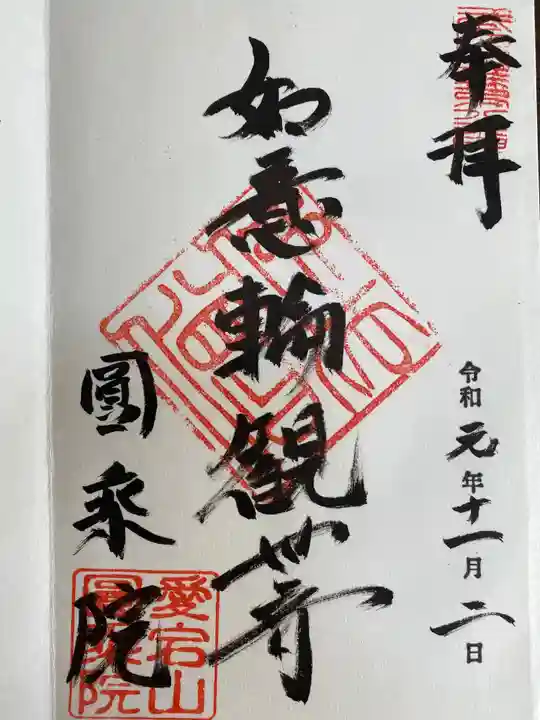 奉拝
令和元年十一月二日
如意輪観世音
圓乗院
愛宕山
圓乗院